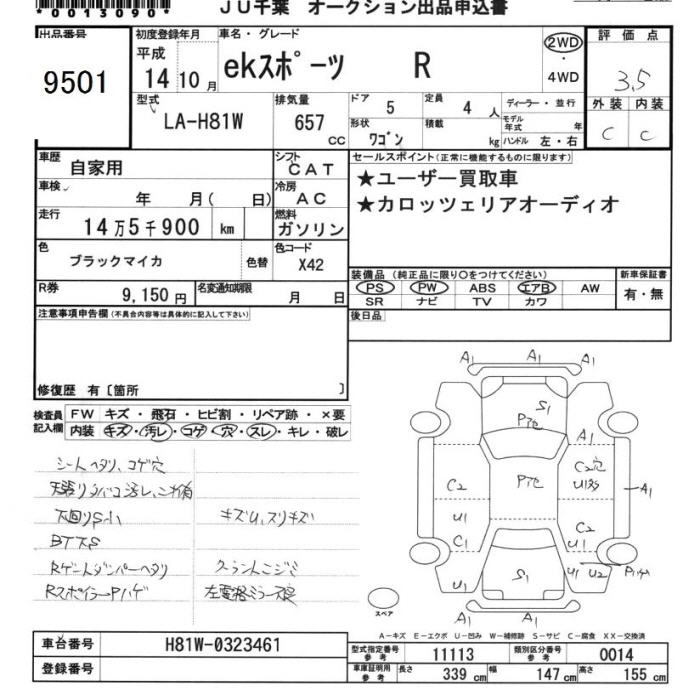 *0013090*
JU千葉 オークション出品申込書
出品番号
9501
初度登録年月
平成
14 10 月
車名・グレード
ekスポーツ R
2WD
・
4WD
評価点
3.5
外装 内装
C C
型式
LA-H81W
排気量
657
cc
ドア 5
定員 4 人
ディーラー・並行
形状 ワゴン
積載 kg
モデル年式 年
ハンドル 左・右
車歴 自家用
シフト CAT
車検 年 月( 日)
冷房 AC
走行 14万5千900 km
燃料 ガソリン
色 ブラックマイカ 色替
色コード X42
R券 9,150円
名変通知期限 月 日
セールスポイント(正常に機能するものに限ります)
★ユーザー買取車
★カロッツェリアオーディオ
装備品(純正品に限り○をつけてください)
PS PW ABS エアB AW
SR ナビ TV カワ
新車保証書
有・無
後日品
注意事項申告欄(不具合内容等は具体的に記入して下さい)
修復歴 有〔箇所 〕
検査員記入欄
FW キズ・飛石・ヒビ割・リペア跡・×要
内装 キズ・汚レ・コゲ・穴・スレ・キレ・破レ
シートヘタリ、コゲ穴
下回りS小 キズU、スリキズ
BTスS
Rゲートダンパーヘタリ
RスポイラーPハゲ
A1 A1 A1
S1
Pヤケ
A1
C2 Pヤケ C2穴
U1多
A1
U1 C2
C1 U1
U1 S1 U1 U2
A1 A1 A1
スペア
A-キズ E-エクボ U-凹み W-補修跡 S-サビ C-腐食 XX-交換済
車台番号 H81W-0323461
登録番号
型式指定番号 参考 11113
類別区分番号 参考 0014
車庫証明用 参考 長さ 339 cm 幅 147 cm 高さ 155 cm